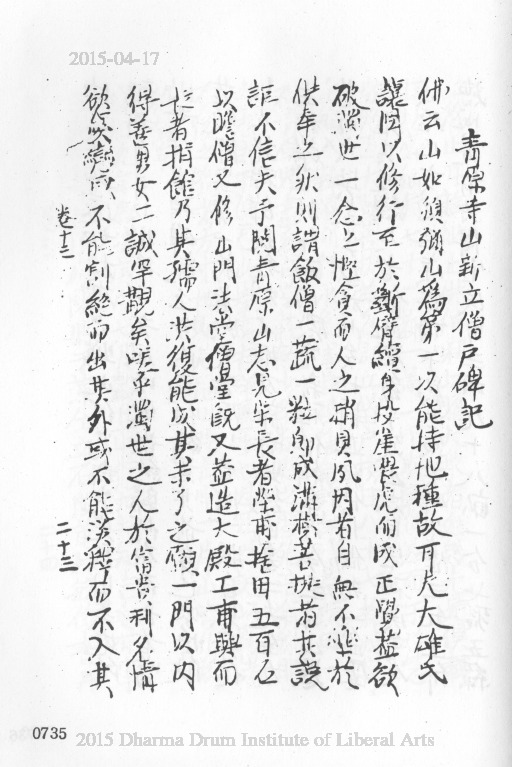 2015-04-17
青原寺山新立僧戶碑記
佛云山如須彌山為第一次能持地種故耳凡大雄氏
讓因以修行至於斷臂經身投崖喂虎而成正覺蓋欲
破濁世一念之慳貪而人之稍具夙因者自無不
供牟之狀則謂飯僧一蔬一粒即成菩提若其說
誣不信夫予閱青原山志見長者捨田五百石
以贍僧又修山門法堂僧堂既又益造大殿工甫興而
長者捐館乃其孺人洪復能成其未了之願一門以內
得善男女二誠罕觀矣嗟乎濁世之人於富貴利名情
欲不能割絕而出其外或不能淡釋而不入其
卷十三
二十三
0735
2015 Dharma Drum Institute of Liberal Arts